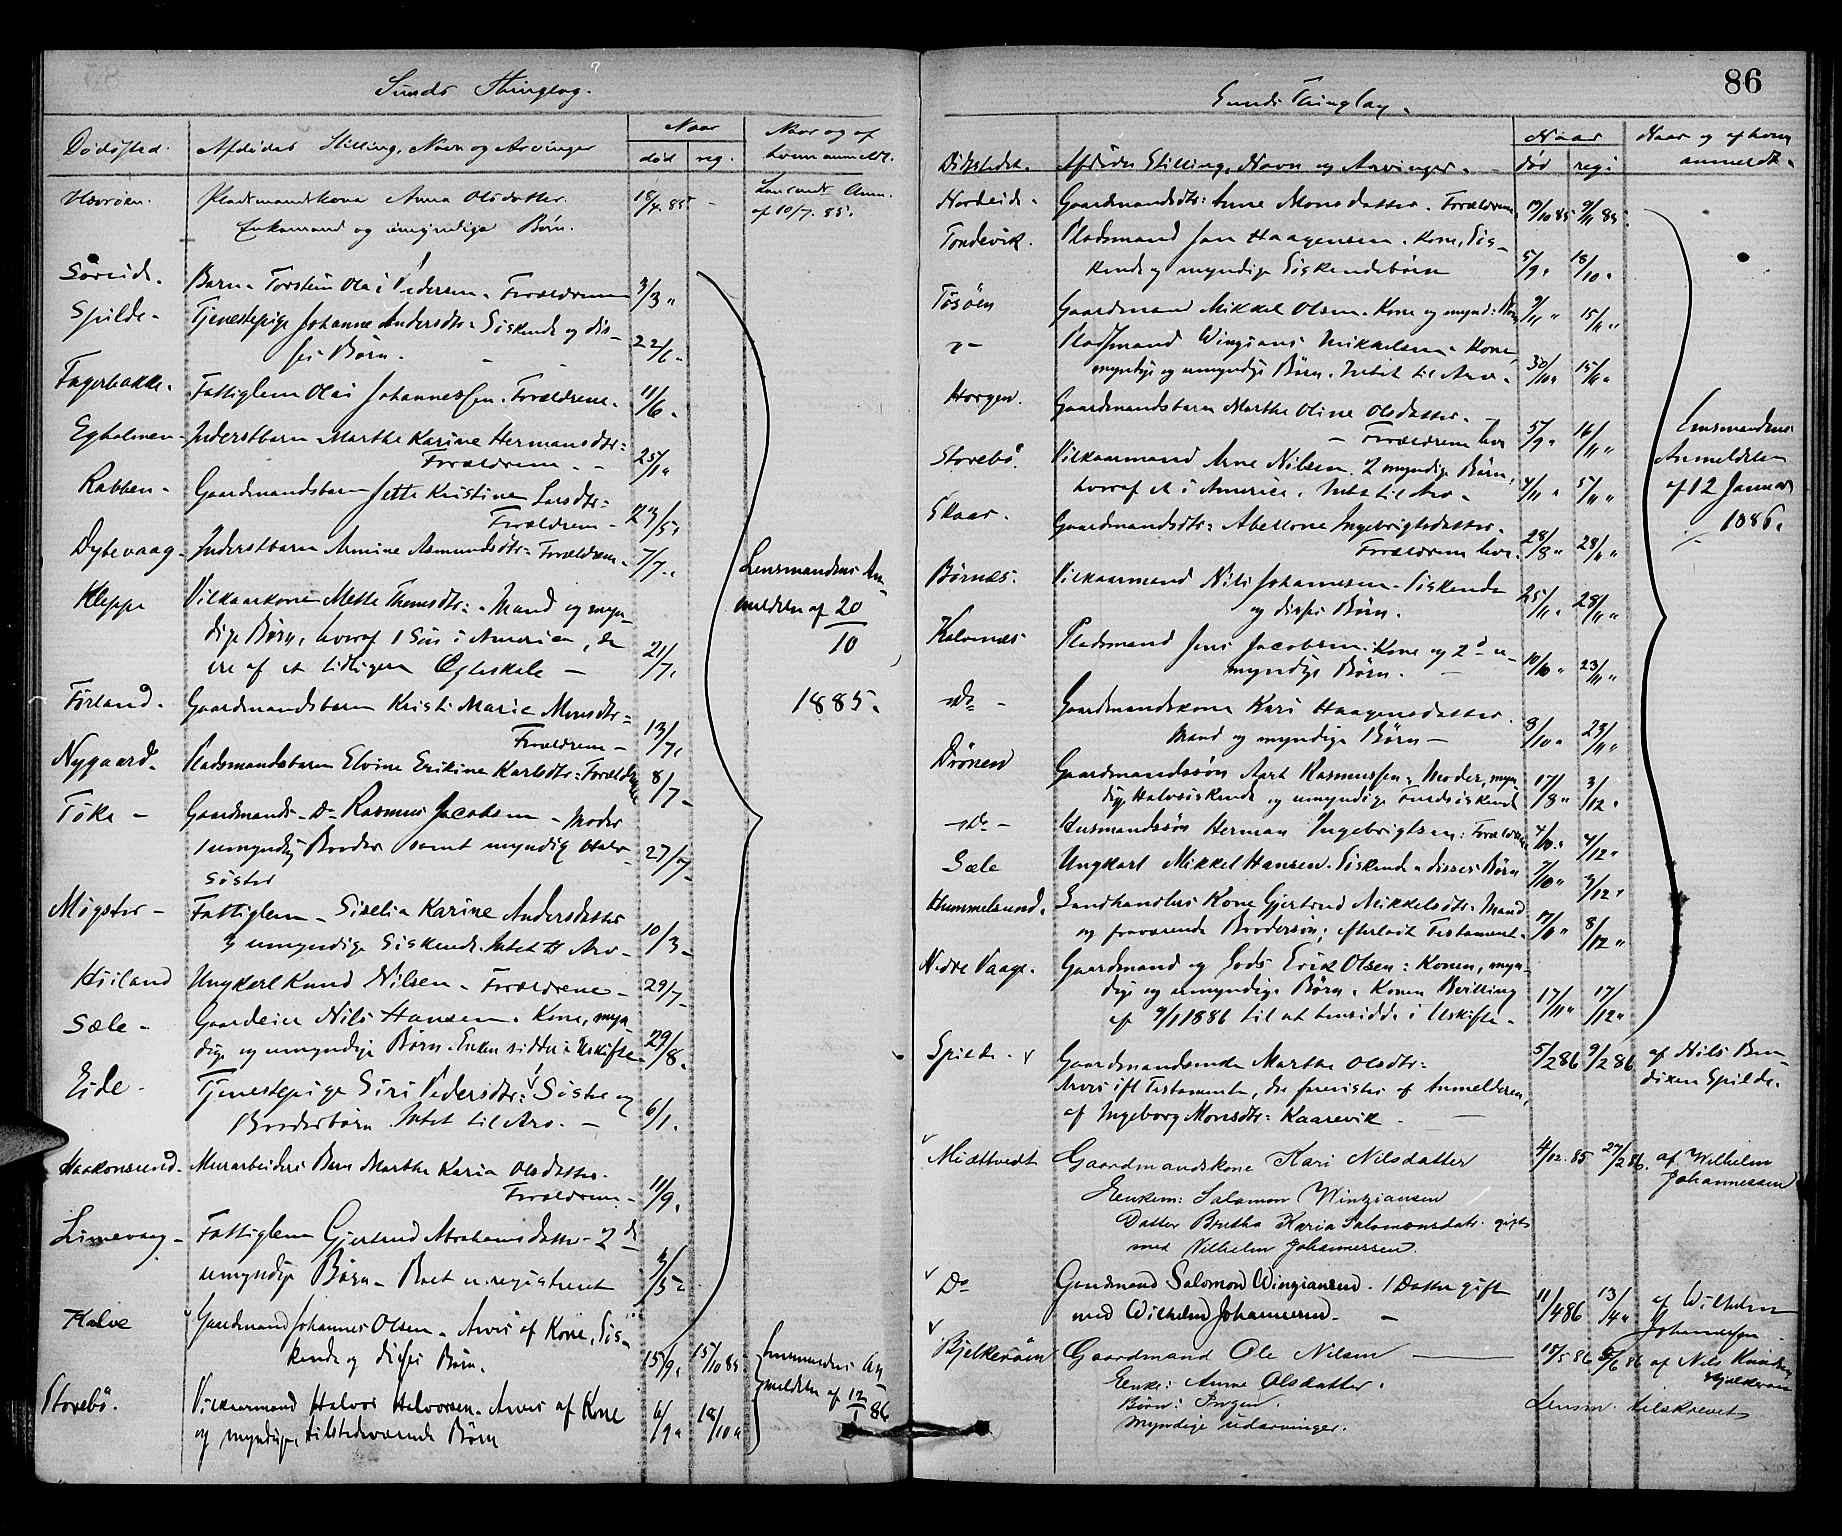 Sunds Thinglag.
Dödssted. Afdödes Stilling, Navn og Arvinger Naar Naar og af
död reg. hvem anmeldt.
Pladsmandskone Anna Olsdatter. 18/4 85 - Lensmds Anm.
Enkemand og umyndige Börn. af 10/7. 85.
Söreide. Barn Torstein Olai Pedersen. Forældrene 3/3 "
Spilde - Tjenestepige Johanne Andersdtr: Söskende og dis-
ses Börn. - 22/6 -
Fagerbakke. Fattiglem Olai Johannessen. Forældrene. 11/6.
Egholmen - Inderstbarn Marthe Karine Hermansdtr:
Forældrene. - 25/1 "
Rabben - Gaardmandsbarn Jette Kristine Larsdtr:
Forældrene - 23/5.
Dybevaag - Inderstbarn Armine Asmundsdtr: Forældrene. 7/7. Lensmandens An-
Kleppe Vilkaarkone Mette Thomsdtr: - Mand og myn- meldelse af 20
dige Börn, hvoraf 1 Sön i America, 10
af et tidligere Ægteskab - 21/7.
Förland - Gaardmandsbarn Kristi Marie Monsdtr: 1885.
Forældrene - 13/7.
Nygaard - Pladsmandsbarn Elvine Erikine Karlsdtr: Forældrene 8/7 -
Töke - Gaardmands - Do Rasmus Jacobsen - Moder
1 umyndig Broder samt myndig Halv- 27/7 -
söster
Mögster - Fattiglem - Giselia Karine Andersdatter
3 umyndige Söskende. Intet til Arv - 10/3 -
Höiland Ungkarl Knud Nilsen - Forældrene - 29/7 -
Sæle - Gaardeier Nils Hansen. Kone, myn-
dige og umyndige Börn. Enken sidder i Uskifte 29/8.
Eide - Tjenestepige Siri Pedersdtr: Söster og
Broderbörn. Intet til Arv. - 6/1.
Haakonsund. Murarbeiders Barn Marthe Karia Olsdatter.
Forældrene - 11/9.
Limevaag - Fattiglem Gjertrud Abrahamsdatter - 2de
umyndige Börn - Boet er registreret 3/5 -
Kalve Gaardmand Johannes Olsen. Arvis af Kone, Sös-
kende og disses Börn. 15/9. 15/10 85 Lensmandens An-
meldelse af 12/1 86
Storebö. Vilkaarmand Halvor Halvorsen. Arvis af Kone
og myndige, tilstedeværende Börn 6/9 " 18/10 "
86
Sunds Thinglag.
Dödsstedet. Afdödes Stilling, Navn og Arvinger. - Naar Naar og af hvem
död reg: anmeldt.
Nordeide - Gaardmandsdtr: Anne Monsdatter. Forældrene 19/10 85 9/11 85.
Tondevik. Pladsmand Jon Haagensen. Kone, Sös-
kende og myndige Söskendebörn 5/9 " 18/10 "
Tösöen Gaardmand Mikkel Olsen. Kone og mynd: Börn 9/11 " 15/11 "
Pladsmand Wingians Mikkelsen. Kone,
myndige og umyndige Börn. Intet til Arv. 30/10 " 15/11 "
Horgen. Gaardmandsbarn Marthe Oline Olsdatter. -
- Forældrene lever 5/9 " 16/11 " Lensmandens
Storebö. Vilkaarmand Arne Nilsen. 2 myndige Börn, Anmeldelse
hvoraf et i America. Intet til Arv - 4/11 " 5/11 " af 12 Januar
Skaar. Gaardmandsdtr: Abellone Ingebrigtsdatter. 1886.
Forældrene lever. 28/8 " 28/11 "
Börnæs. Vilkaarmand Nils Johannesen - Söskende
og disses Börn. 25/11 " 28/11 "
Kalvenæs Pladsmand Jens Jacobsen: Kone og 2de u-
myndige Börn. - 10/10 " 23/11 "
Do - Gaardmandskone Kari Haagensdatter.
Mand og myndige Börn - 8/10 " 23/11 "
Drönen Gaardmandssön Aart Rasmussen: Moder, myn-
dige Halvsöskende og umyndige Fuldsöskende 17/8 " 3/12 "
Do - Husmandssön Herman Ingebrigtsen: Forældrene 4/10 " 4/12 "
Sæle Ungkarl Mikkel Hansen. Söskende & disses Börn 7/10 " 7/12 "
Hummelsund. Landhandlers Kone Gjertrud Mikkelsdtr: Mand
og fraværende Brodersön; efterladt Testament. 17/11 " 8/12 "
Nedre Vaage. Gaardmand og Lods Erik Olsen: Konen, myn-
dige og umyndige Börn. Konen Bevilling
af 9/1 1886 til at hensidde i Uskifte - 17/11 " 17/12 "
Spilde. v Gaardmandsenke Marthe Olsdtr: 5/2 86 9/2 86 af Nils Ben-
Arvis ift Testamente, der forevistes af Anmelderen, diksen Spilde.
af Ingeborg Monsdtr: Kaarevik -
Midttvedt Gaardmandskone Kari Nilsdatter 4/12. 85 27/2 86. af Wilhelm
Enkem: Salamon Wingiansen Johannessen
Datter Bertha Karia Salomonsdatr. gift
med Vilhelm Johannessen.
v Do Gaardmand Salomon Wingiansen. 1 Datter gift
med Wilhelm Johannesen. - 11/4 86 13/4 " af Wilhelm
Johannessen
v Bjelkeröen Gaardmand Ole Nilsen - 15/5 86 5/6 86 af Nils Knudsen
Enke: Anne Olsdatter. Bjelkeröen
Börn: Ingen. Lensm. tilskrevet
Myndige udarvinger.